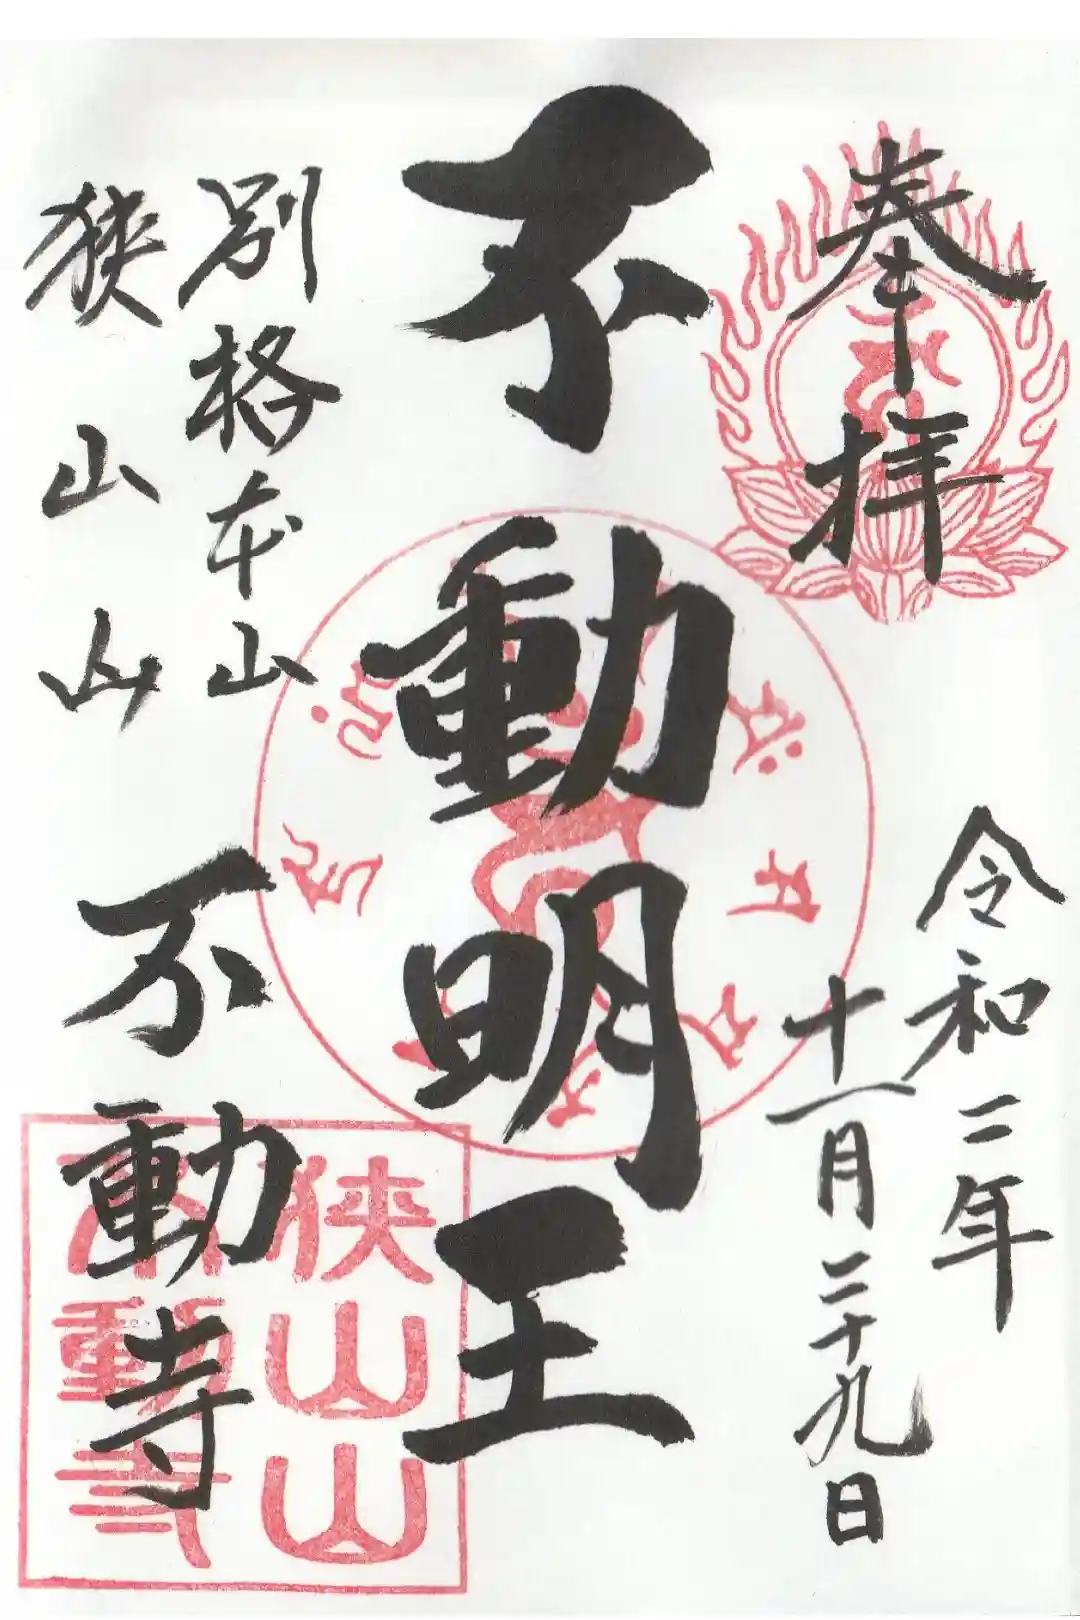 奉拝
令和二年
十一月二十九日
不動明王
別格本山
狭山山
不動寺
狭山山
不動寺